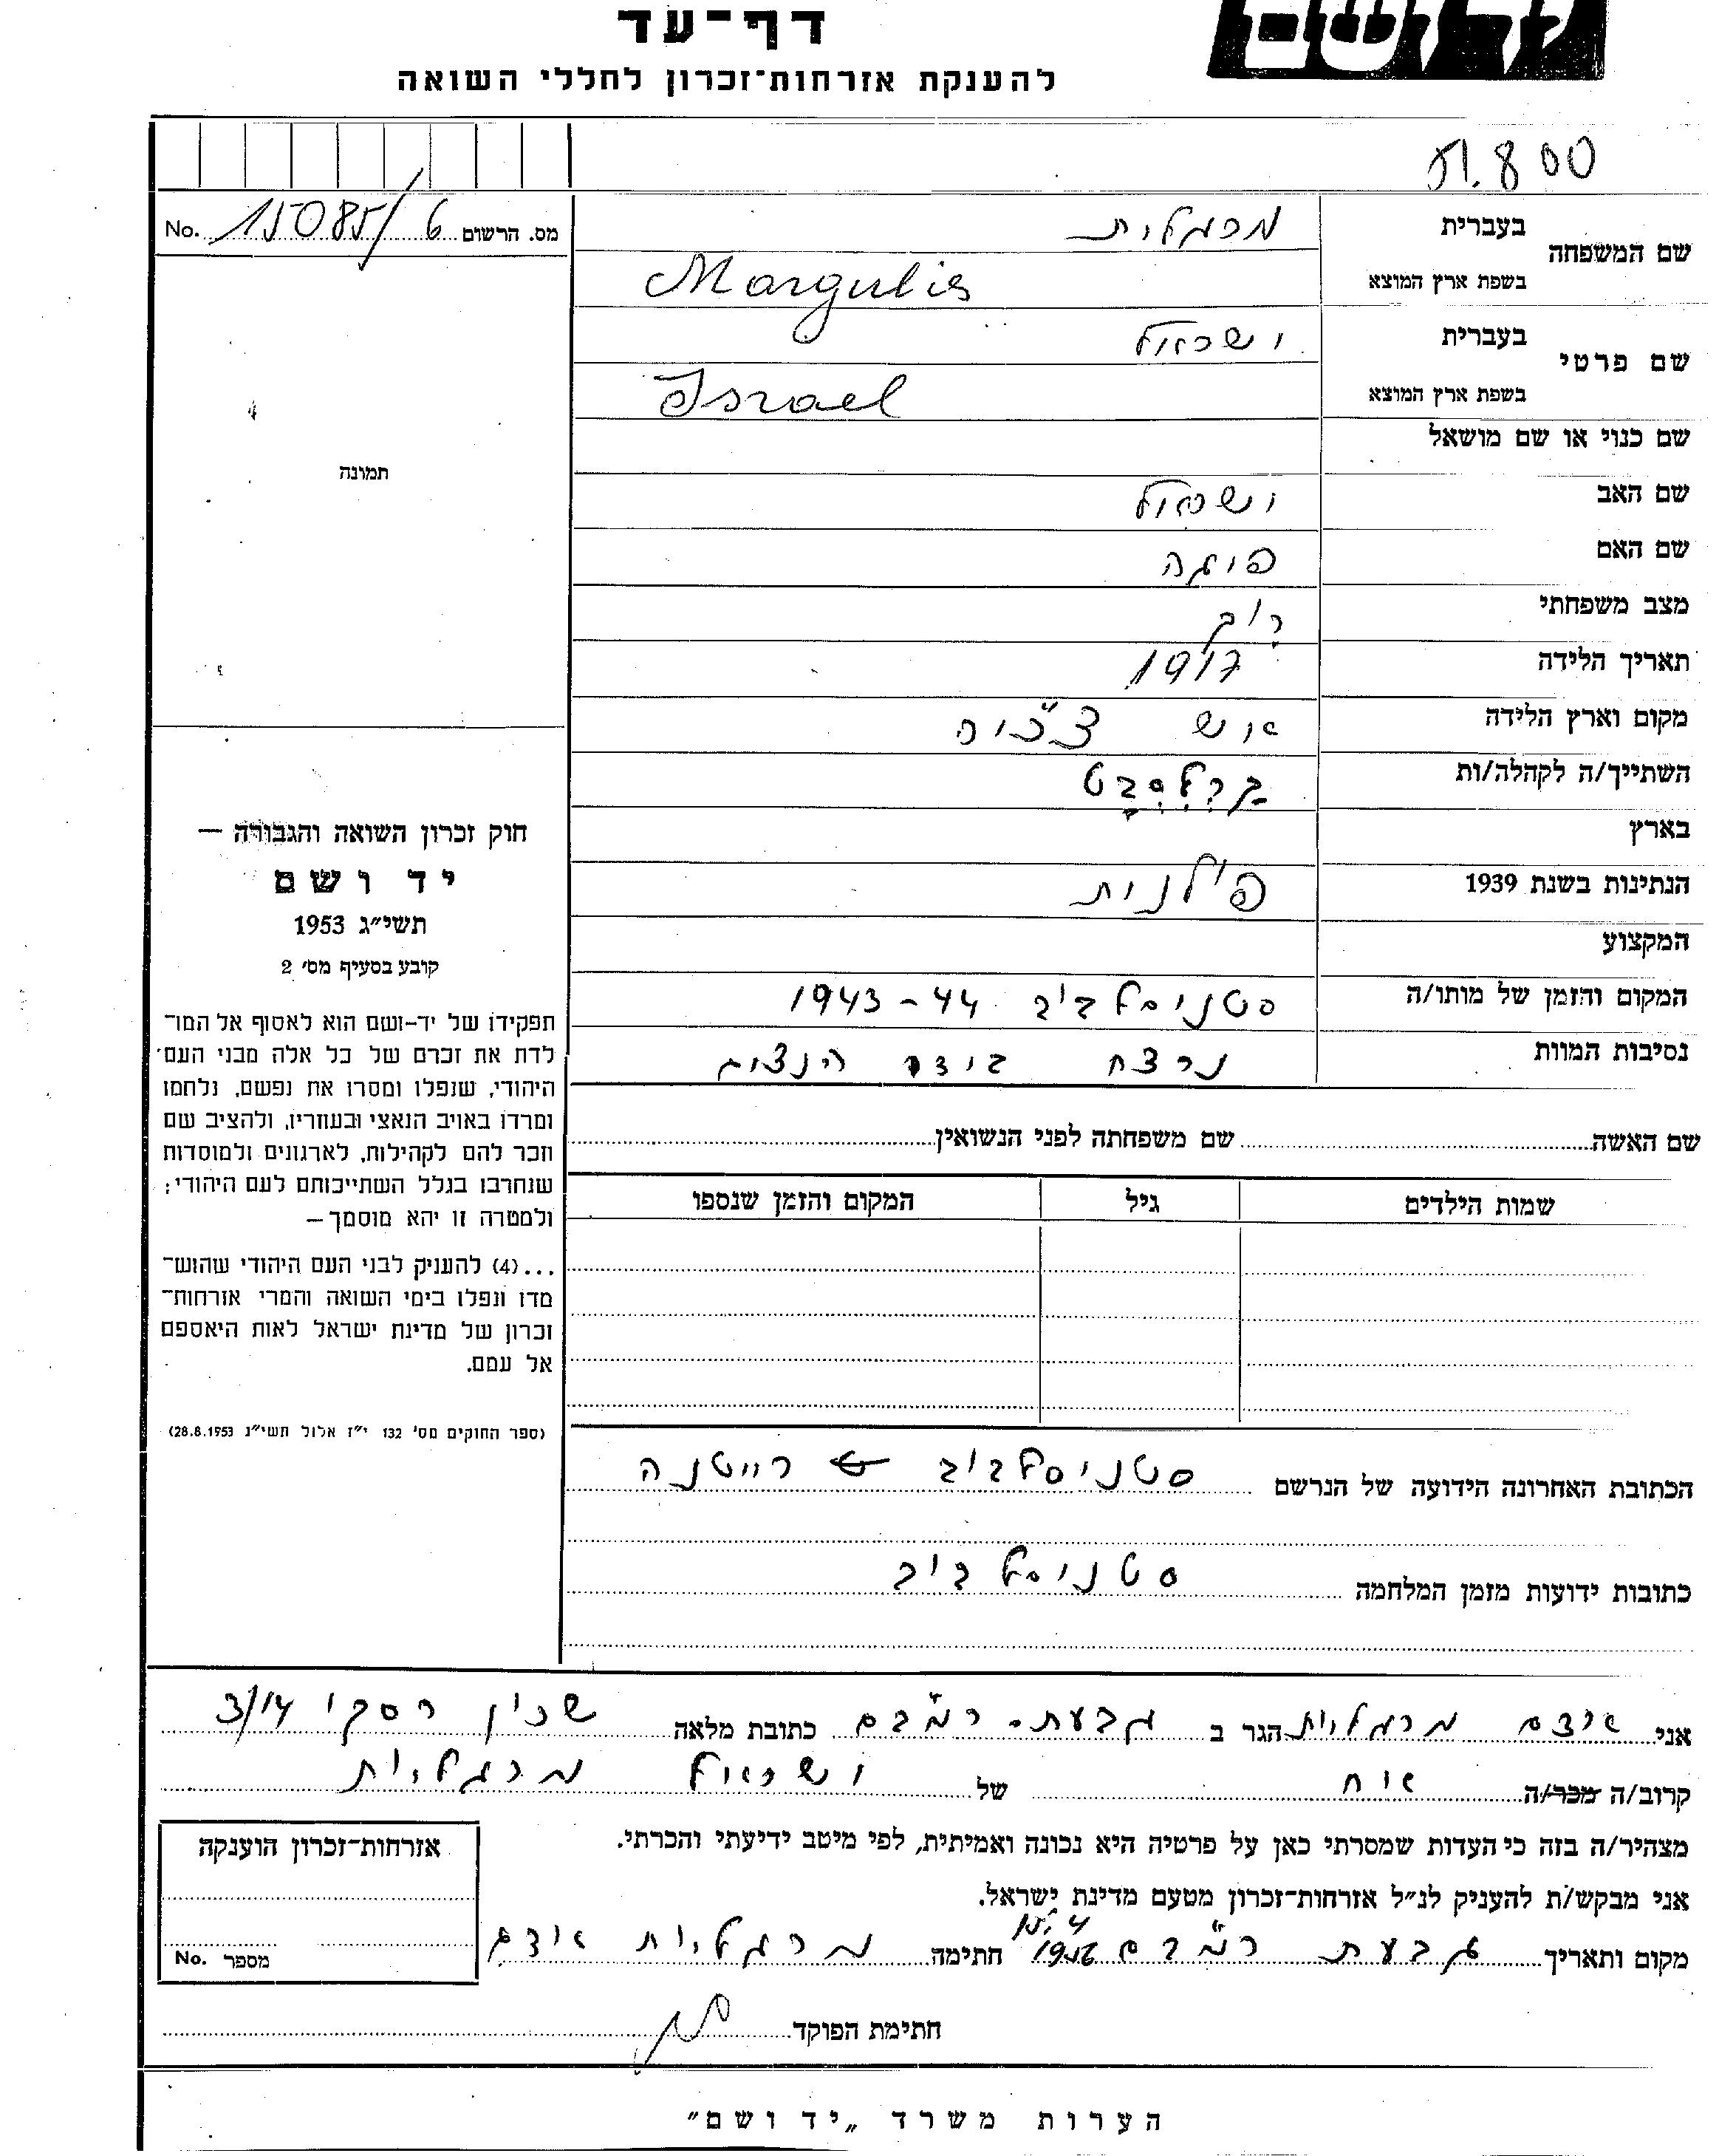 ד ושם
דף־עד
להענקת אזרחות־זכרון לחללי השואה
800
מס. הרשום 15085/6 No.
שם המשפחה
בעברית מרגלית
בשפת ארץ המוצא Margulis
שם פרטי
בעברית ישראל
בשפת ארץ המוצא Israel
שם כנוי או שם מושאל
שם האב ישראל
שם האם פייגה
מצב משפחתי רווק
תאריך הלידה 1917
מקום וארץ הלידה
השתייך/ה לקהלה/ות
בארץ
הנתינות בשנת 1939 פולנית
המקצוע
המקום והזמן של מותו/ה סטניסלביב 1943-44
נסיבות המוות נרצח בידי הנצים
תמונה
חוק זכרון השואה והגבורה —
יד ושם
תשי״ג 1953
קובע בסעיף מס׳ 2
תפקידו של יד-ושם הוא לאסוף אל המו־
לדת את זכרם של כל אלה מבני העם
היהודי, שנפלו ומסרו את נפשם, נלחמו
ומרדו באויב הנאצי ובעוזריו, ולהציב שם
וזכר להם לקהילות, לארגונים ולמוסדות
שנחרבו בגלל השתייכותם לעם היהודי;
ולמטרה זו יהא מוסמך—
...(4) להעניק לבני העם היהודי שהוש־
מדו ונפלו בימי השואה והמרי אזרחות־
זכרון של מדינת ישראל לאות היאספם
אל עמם.
(ספר החוקים מס׳ 132 י״ז אלול תשי״ג 28.8.1953)
שם האשה שם משפחתה לפני הנשואין
שמות הילדים גיל המקום והזמן שנספו
הכתובת האחרונה הידועה של הנרשם סטניסלביב
כתובות ידועות מזמן המלחמה סטניסלביב
אני מרגלית הגר ב גבעת- רמב"ם כתובת מלאה שכון רסקו 3/14
קרוב/ה מכר/ה אח של ישראל מרגלית
מצהיר/ה בזה כי העדות שמסרתי כאן על פרטיה היא נכונה ואמיתית, לפי מיטב ידיעתי והכרתי.
אני מבקש/ת להעניק לנ״ל אזרחות־זכרון מטעם מדינת ישראל.
מקום ותאריך גבעת רמב"ם 1956 חתימה מרגלית
אזרחות־זכרון הוענקה
מספר No.
חתימת הפוקד
הערות משרד „יד ושם״